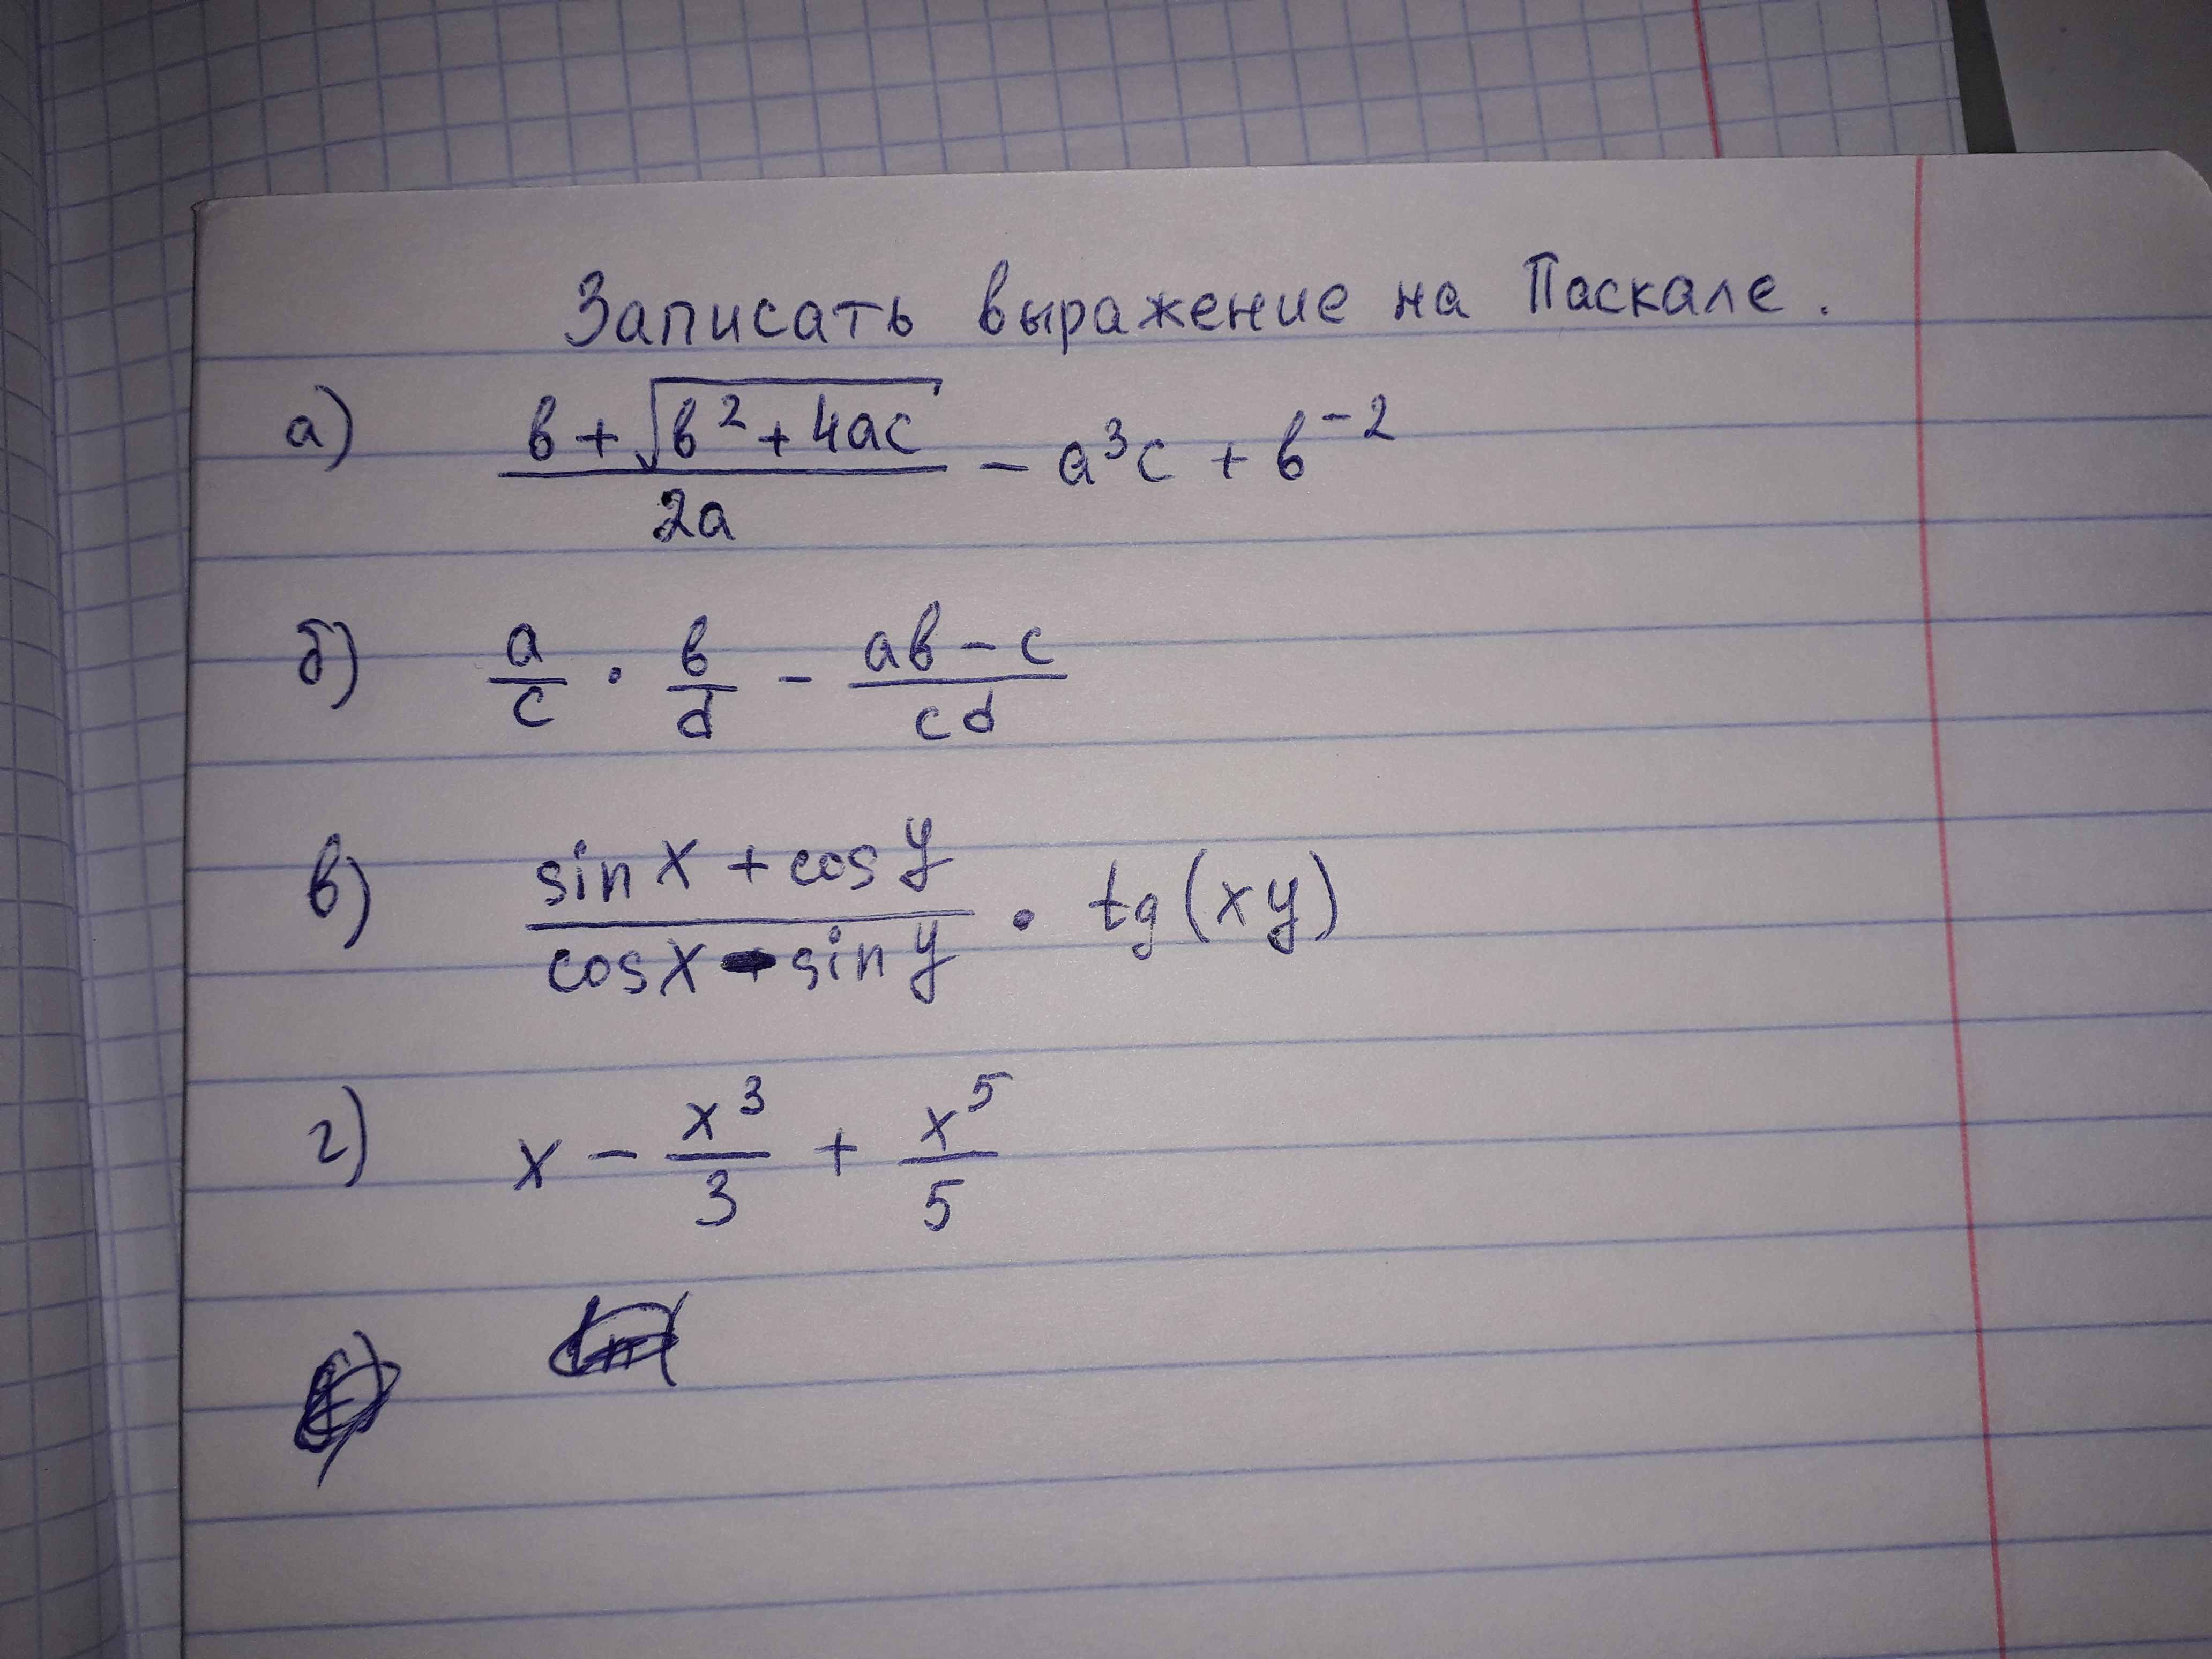 Записать выражение на Паскале.
а) (в + √(в² + 4ac))/(2a) − a³c + в⁻²
б) a/c · в/d − (aв − c)/(cd)
в) (sin x + cos y)/(cos x − sin y) · tg(xy)
г) x − x³/3 + x⁵/5